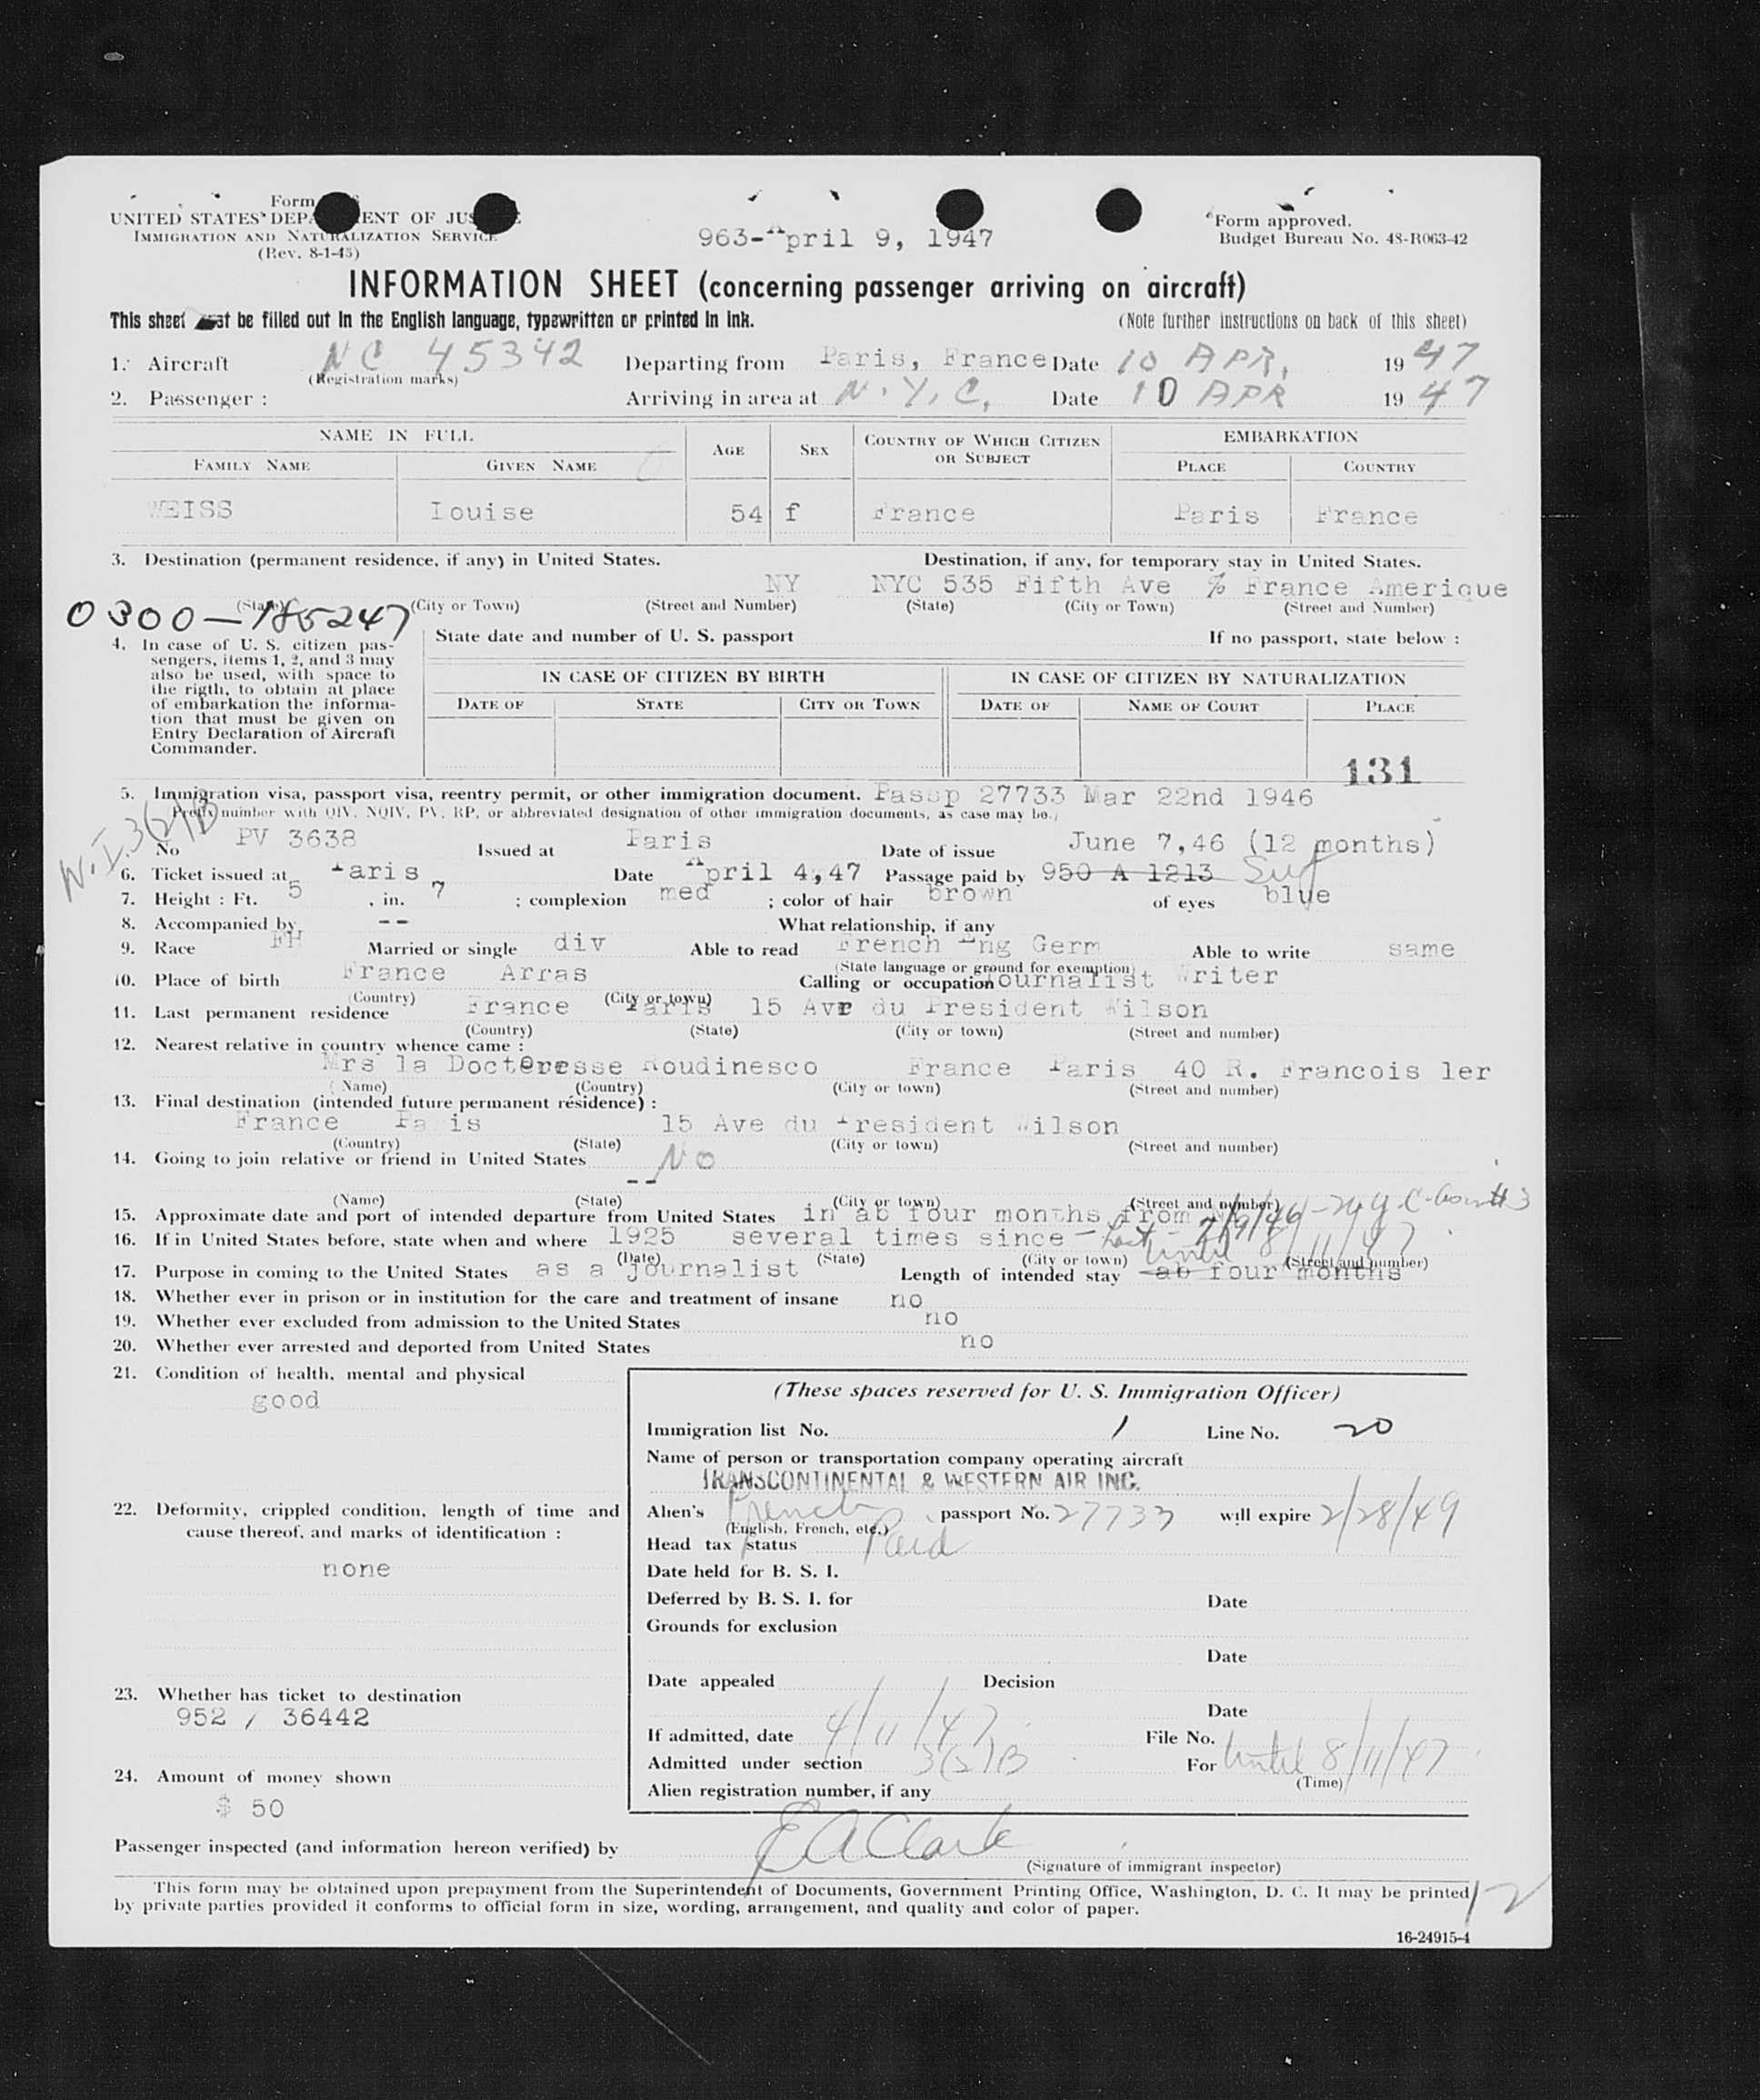 Form
UNITED STATES DEPA ENT OF JUS
IMMIGRATION AND NATURALIZATION SERVICE
(Rev. 8-1-45)
963-April 9, 1947
Form approved.
Budget Bureau No. 43-R063-42
INFORMATION SHEET (concerning passenger arriving on aircraft)
This sheet must be filled out in the English language, typewritten or printed in ink.
(Note further instructions on back of this sheet)
1. Aircraft NC 45342 Departing from Paris, France Date 10 APR, 1947
(Registration marks)
2. Passenger : Arriving in area at N.Y.C. Date 10 APR 1947
NAME IN FULL AGE SEX COUNTRY OF WHICH CITIZEN OR SUBJECT EMBARKATION
FAMILY NAME GIVEN NAME PLACE COUNTRY
WEISS Iouise 54 f France Paris France
3. Destination (permanent residence, if any) in United States. Destination, if any, for temporary stay in United States.
NY NYC 535 Fifth Ave % France Amerique
(State) (City or Town) (Street and Number) (State) (City or Town) (Street and Number)
0300-185247
4. In case of U. S. citizen pas-
sengers, items 1, 2, and 3 may
also be used, with space to
the rigth, to obtain at place
of embarkation the informa-
tion that must be given on
Entry Declaration of Aircraft
Commander.
State date and number of U. S. passport If no passport, state below :
IN CASE OF CITIZEN BY BIRTH IN CASE OF CITIZEN BY NATURALIZATION
DATE OF STATE CITY OR TOWN DATE OF NAME OF COURT PLACE
131
5. Immigration visa, passport visa, reentry permit, or other immigration document. Passp 27733 Mar 22nd 1946
(Prefix number with QIV, NQIV, PV, RP, or abbreviated designation of other immigration documents, as case may be.)
N.I. 3(2)B
No PV 3638 Issued at Paris Date of issue June 7,46 (12 months)
6. Ticket issued at Paris Date April 4,47 Passage paid by 950 A 1213 Self
7. Height : Ft. 5 , in. 7 ; complexion med ; color of hair brown of eyes blue
8. Accompanied by -- What relationship, if any
9. Race FH Married or single div Able to read French Eng Germ Able to write same
(State language or ground for exemption)
10. Place of birth France Arras Calling or occupation Journalist Writer
(Country) (City or town)
11. Last permanent residence France Paris 15 Ave du President Wilson
(Country) (State) (City or town) (Street and number)
12. Nearest relative in country whence came :
Mrs la Docteresse Roudinesco France Paris 40 R. Francois 1er
(Name) (Country) (City or town) (Street and number)
13. Final destination (intended future permanent résidence) :
France Pa is 15 Ave du President Wilson
(Country) (State) (City or town) (Street and number)
14. Going to join relative or friend in United States No
--
(Name) (State) (City or town) (Street and number)
15. Approximate date and port of intended departure from United States in ab four months from
16. If in United States before, state when and where 1925 several times since - Last - 7/9/46 -
(Date) (State) (City or town) (Street and number)
17. Purpose in coming to the United States as a journalist Length of intended stay ab four months until 8/11/47
18. Whether ever in prison or in institution for the care and treatment of insane no
19. Whether ever excluded from admission to the United States no
20. Whether ever arrested and deported from United States no
21. Condition of health, mental and physical
good
(These spaces reserved for U. S. Immigration Officer)
Immigration list No. 1 Line No. 20
Name of person or transportation company operating aircraft
TRANSCONTINENTAL & WESTERN AIR INC.
22. Deformity, crippled condition, length of time and
cause thereof, and marks of identification :
none
Alien's French passport No. 27733 will expire 2/28/49
(English, French, etc.)
Head tax status Paid
Date held for B. S. I.
Deferred by B. S. I. for Date
Grounds for exclusion
Date
Date appealed Decision
Date
23. Whether has ticket to destination
952 / 36442
If admitted, date 4/11/47 File No.
Admitted under section 3(2)B For Until 8/11/47
(Time)
Alien registration number, if any
24. Amount of money shown
$ 50
Passenger inspected (and information hereon verified) by E A Clark
(Signature of immigrant inspector)
This form may be obtained upon prepayment from the Superintendent of Documents, Government Printing Office, Washington, D. C. It may be printed
by private parties provided it conforms to official form in size, wording, arrangement, and quality and color of paper.
12
16-24915-4